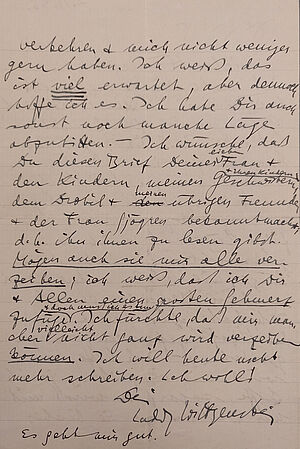 verkehren & mich nicht weniger
gern haben. Ich weiß, das
ist viel erwartet, aber dennoch
hoffe ich es. Ich habe Dir auch
sonst noch manche Lüge
abzubitten. – Ich wünsche, daß
Du diesen Brief Deiner lieben Frau &
den Kindern, meinen Geschwistern & ihren Kindern,
dem Drobil & meinen übrigen Freunden
& der Frau Sjögren bekanntmachst,
d.h. ihn ihnen zu lesen gibst.
Mögen auch sie mir alle ver-
zeihen; ich weiß, daß ich Dir
& Allen einen großen Schmerz
zufüge. Ich fürchte, daß mir
aber vielleicht nicht ganz wird verzeihen
können. Ich will heute nicht
mehr schreiben. Leb wohl!
Dein
Ludwig Wittgenstein
Es geht mir gut.